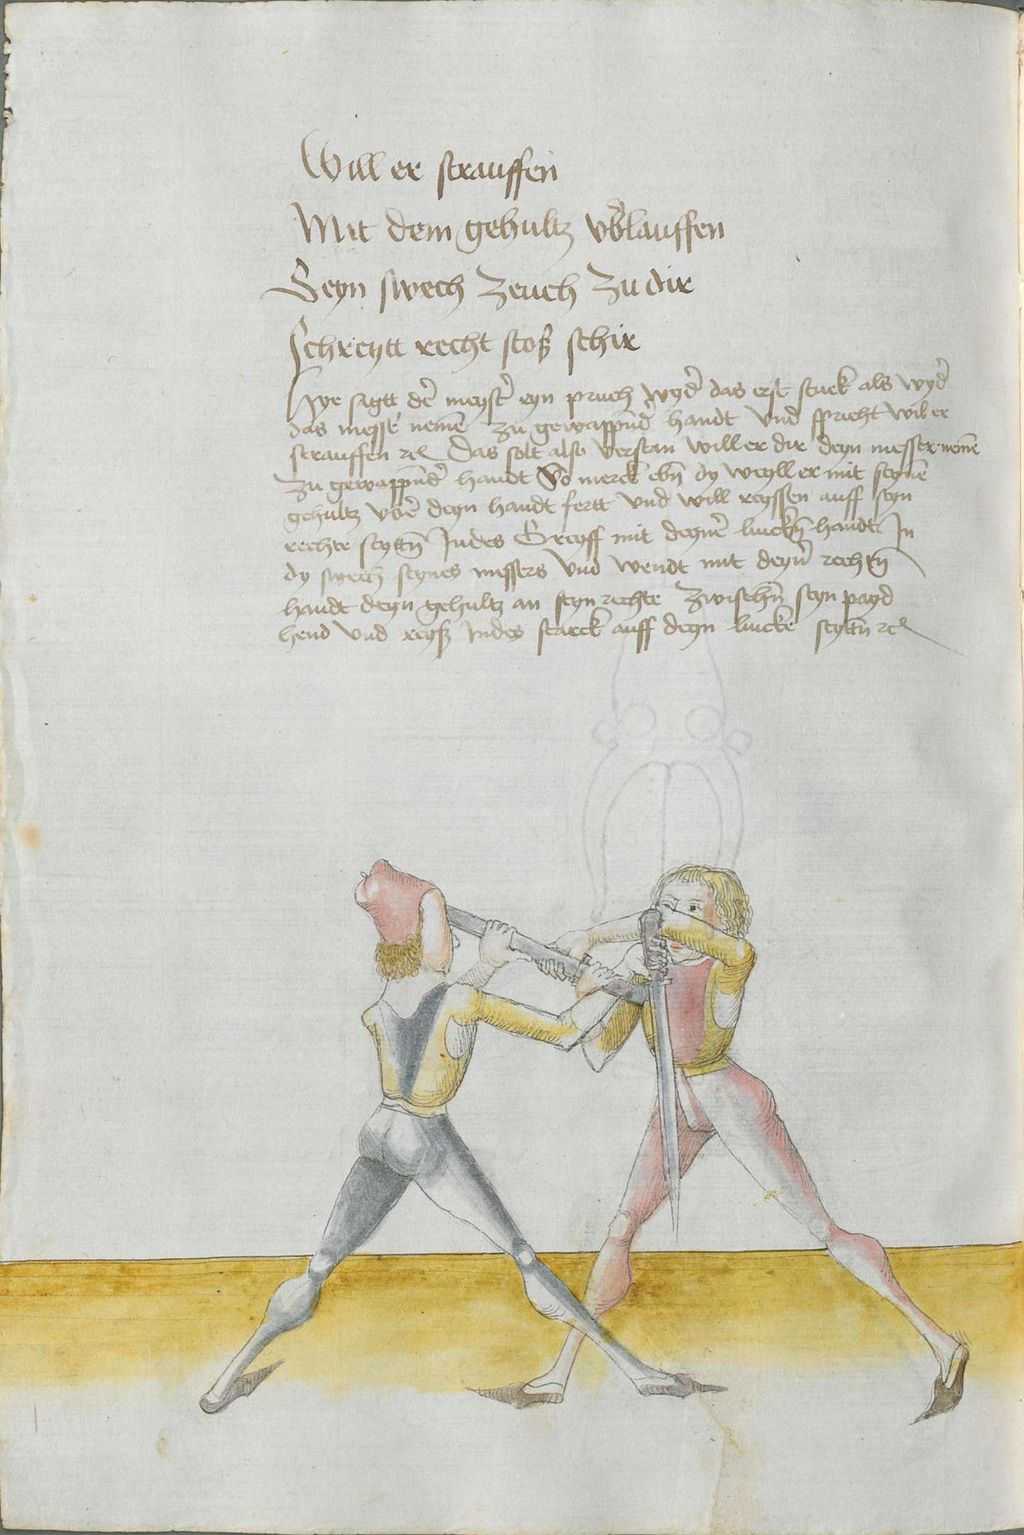 Will er strauffen
Mit dem gehultz vb̄lauffen
Seyn swech Zeuch Zu dir
Schreytt recht stoß schir
Hye sagtt dē meystē eyn pruch wydē das erst stuck als wydē
das messē nemē zu gewappndē handt vnd spricht wil er
strauffen ⁊c Das solt also verstan will er dir deyn messer nemē
Zu gewappndē handt So merck ebn̄ dy weyll er mit seynē
gehultz vbē deyn handt fertt vnd will reyssen auff seyn
rechte seyttn̄ Indes Greyff mit deynē linckn̄ handt In
dy swech seynes messers vnd wendt mit deynē rechtn̄
handt deyn gehultz an seyn rechte Zwischn̄ seyn payd
hend vnd reyß Indes starck auff deyn lincke seyttn̄ ⁊c